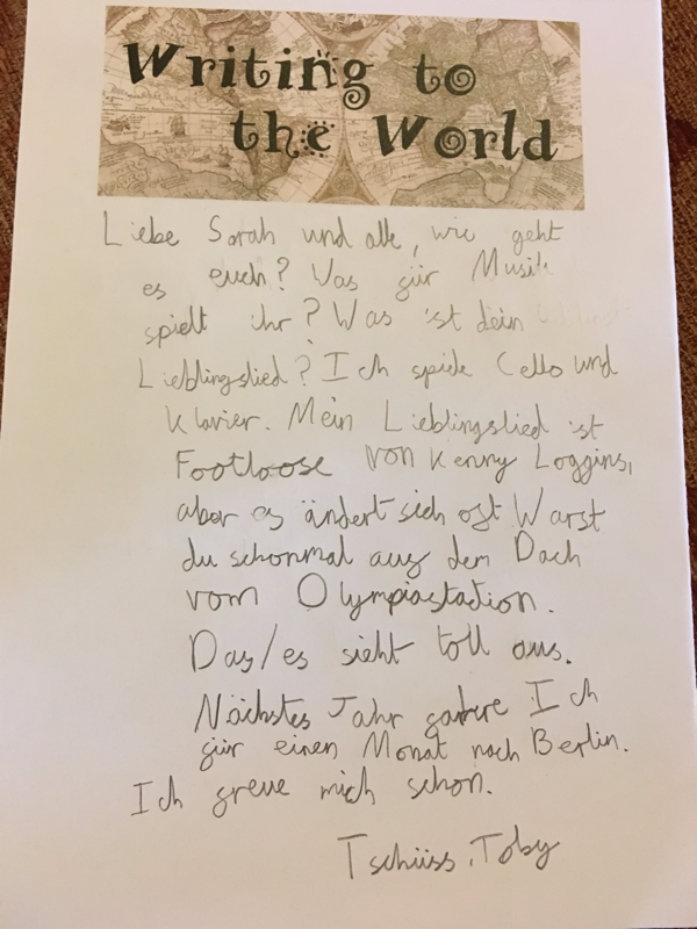 Writing to
the World
Liebe Sarah und alle, wie geht
es euch? Was für Musik
spielt ihr? Was ist dein
Lieblingslied? Ich spiele Cello und
Klavier. Mein Lieblingslied ist
Footloose von Kenny Loggins,
aber es ändert sich oft Warst
du schonmal auf dem Dach
vom Olympiastadion.
Das/es sieht toll aus.
Nächstes Jahr Ich
für einen Monat nach Berlin.
Ich freue mich schon.
Tschüss, Toby